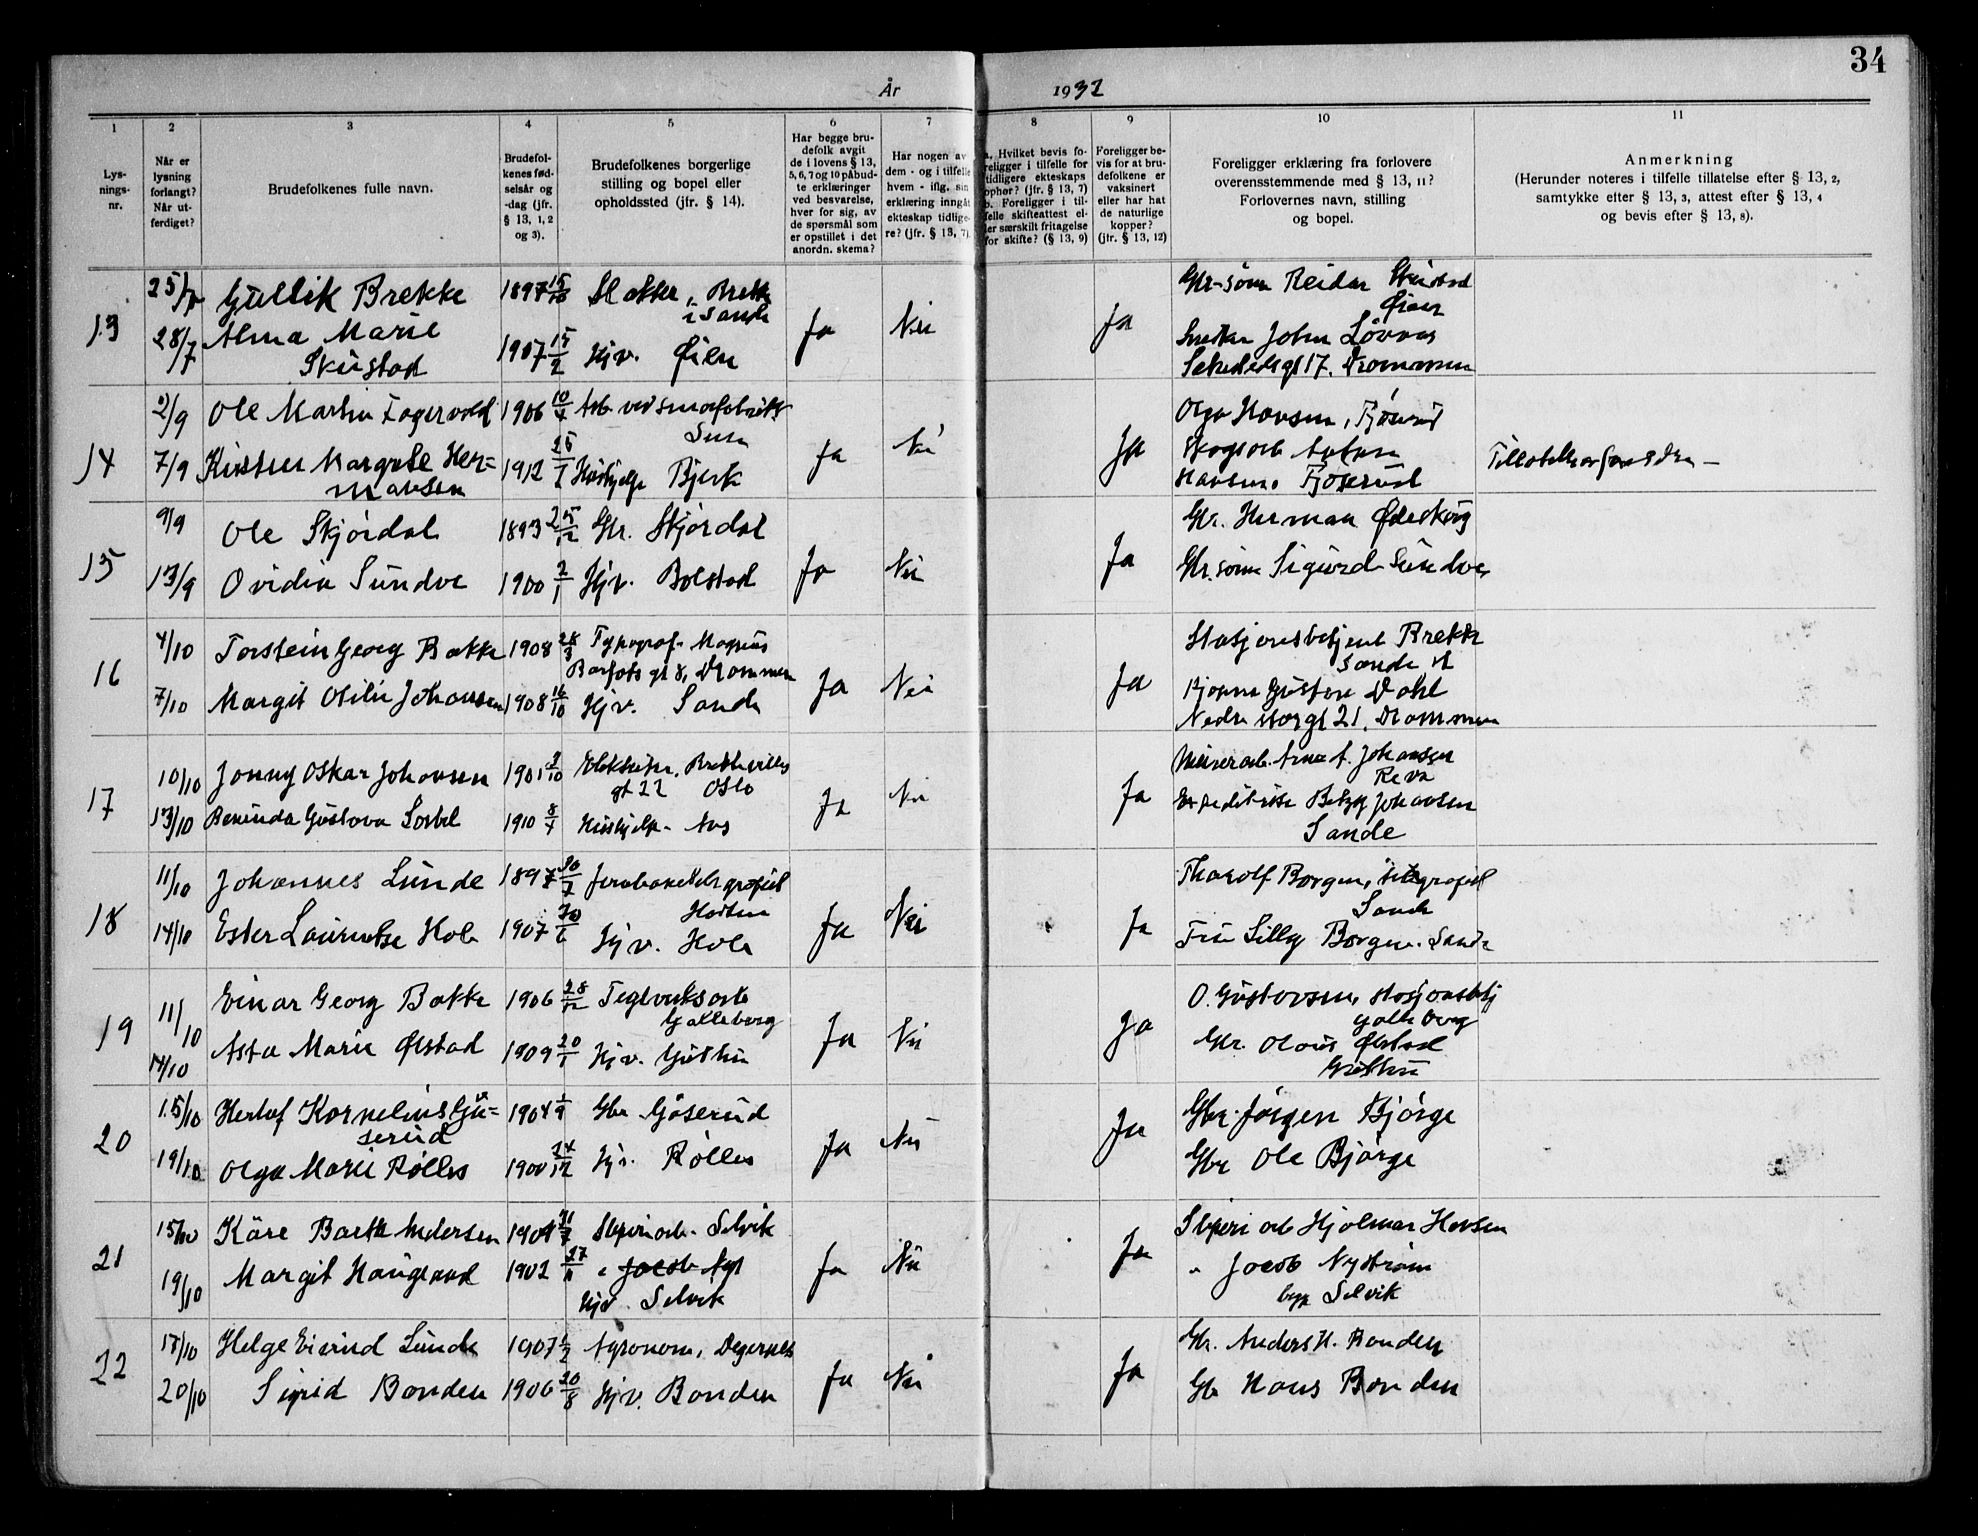 34
År 1932
1 2 3 4 5 6 7 8 9 10 11
Lys-
nings-
nr.
Når er
lysning
forlangt?
Når ut-
ferdiget?
Brudefolkenes fulle navn.
Brudefol-
kenes fød-
selsår og
-dag (jfr.
§ 13, 1, 2
og 3).
Brudefolkenes borgerlige
stilling og bopel eller
opholdssted (jfr. § 14).
Har begge bru-
defolk avgit
de i lovens § 13,
5, 6, 7 og 10 påbud-
te erklæringer
ved besvarelse,
hver for sig, av
de spørsmål som
er opstillet i det
anordn. skema?
Har nogen av
dem - og i tilfelle
hvem - iflg. sin
erklæring inngåt
ekteskap tidlige-
re? (jfr. § 13, 7).
a. Hvilket bevis fo-
religger i tilfelle for
tidligere ekteskaps
ophør? (jfr. § 13, 7)
b. Foreligger i til-
felle skifteattest el-
ler særskilt fritagelse
for skifte? (§ 13, 9)
Foreligger be-
vis for at bru-
defolkene er
vaksinert
eller har hat
de naturlige
kopper?
(jfr. § 13, 12)
Foreligger erklæring fra forlovere
overensstemmende med § 13, 11?
Forlovernes navn, stilling
og bopel.
Anmerkning
(Herunder noteres i tilfelle tillatelse efter § 13, 2,
samtykke efter § 13, 3, attest efter § 13, 4
og bevis efter § 13, 8).
13
25/7 Gullik Brekke 1897 15/10 Brekke
i Sande
28/7 Alma Marie
Skustad 1907 15/2 Hjv. Øien
Ja Nei Ja
Gbr-sønn Reidar Skustad
Øien
Snekker John Løvaas
gt 17. Drammen
14
2/9 Ole Martin Fagervold 1906 10/4 Arb ved
7/9 Kirsten Margrete Her=
mansen 1912 Hushjelp Bjerk
Ja Nei Ja
Olga Hansen, Fjøserud
Skogsarb Anton
Hansen, Fjøserud
15
9/9 Ole Skjørdal 1893 25/12 Gbr. Skjørdal
13/9 Ovidia Sundve 1900 2/1 Hjv. Bolstad
Ja Nei Ja
Gbr. Herman Ødeskog
Gbr. sønn Sigurd Sundve
16
4/10 Torstein Georg Bakke 1908 28/3 Typograf. Magnus
Barfots gt 8, Drammen
7/10 Margit Otilie Johansen 1908 16/10 Hjv. Sande
Ja Nei Ja
Stasjonsbetjent Brekke
Sande st
Gustav Dahl
Nedre storgt 21. Drammen
17
10/10 Jonny Oskar Johansen 1901 9/10 Elektriker,
gt 22 Oslo
13/10 Gustava Sørbel 1910 8/4 Hushjelp. Aas
Ja Nei Ja
Murerarb. Arne A. Johansen
Reva
Betzy Johansen
Sande
18
11/10 Johannes Lunde 1897 30/7 Jernbanetelegrafist
Horten
14/10 Ester Laurentse Holm 1907 30/6 Hjv. Holm
Ja Nei Ja
Thorolf Borgen, telegrafist
Sande
Fru Lilly Borgen. Sande
19
11/10 Einar Georg Bakke 1906 28/12 Teglverksarb
Galleberg
14/10 Asta Marie Ørstad 1909 20/1 Hjv. Gutthu
Ja Nei Ja
O. Gustavsen, stasjonsbetj
Galleberg
Gbr. Olaus Ørstad
Gutthu
20
15/10 Herlof Kornelius Gju=
serud 1904 1/9 Gbr Gjøserud
19/10 Olga Marie Rølles 1900 24/12 Hjv. Rølles
Ja Nei Ja
Gbr. Jørgen Bjørge
Gbr Ole Bjørge
21
15/10 Kåre Barth Andersen 1904 Sliperiarb. Selvik
19/10 Margit Haugland 1902 27/11 " Jacob Nyst
Hjv. Selvik
Ja Nei Ja
Sliperiarb Hjalmar Hansen
" Jacob Nystrøm
begge Selvik
22
18/10 Helge Eivind Lunde 1907 1/2 Agronom, Degernes
20/10 Sigrid Bonden 1906 20/8 Hjv. Bonden
Ja Nei Ja
Gbr. Anders H. Bonden
Gbr Hans Bonden